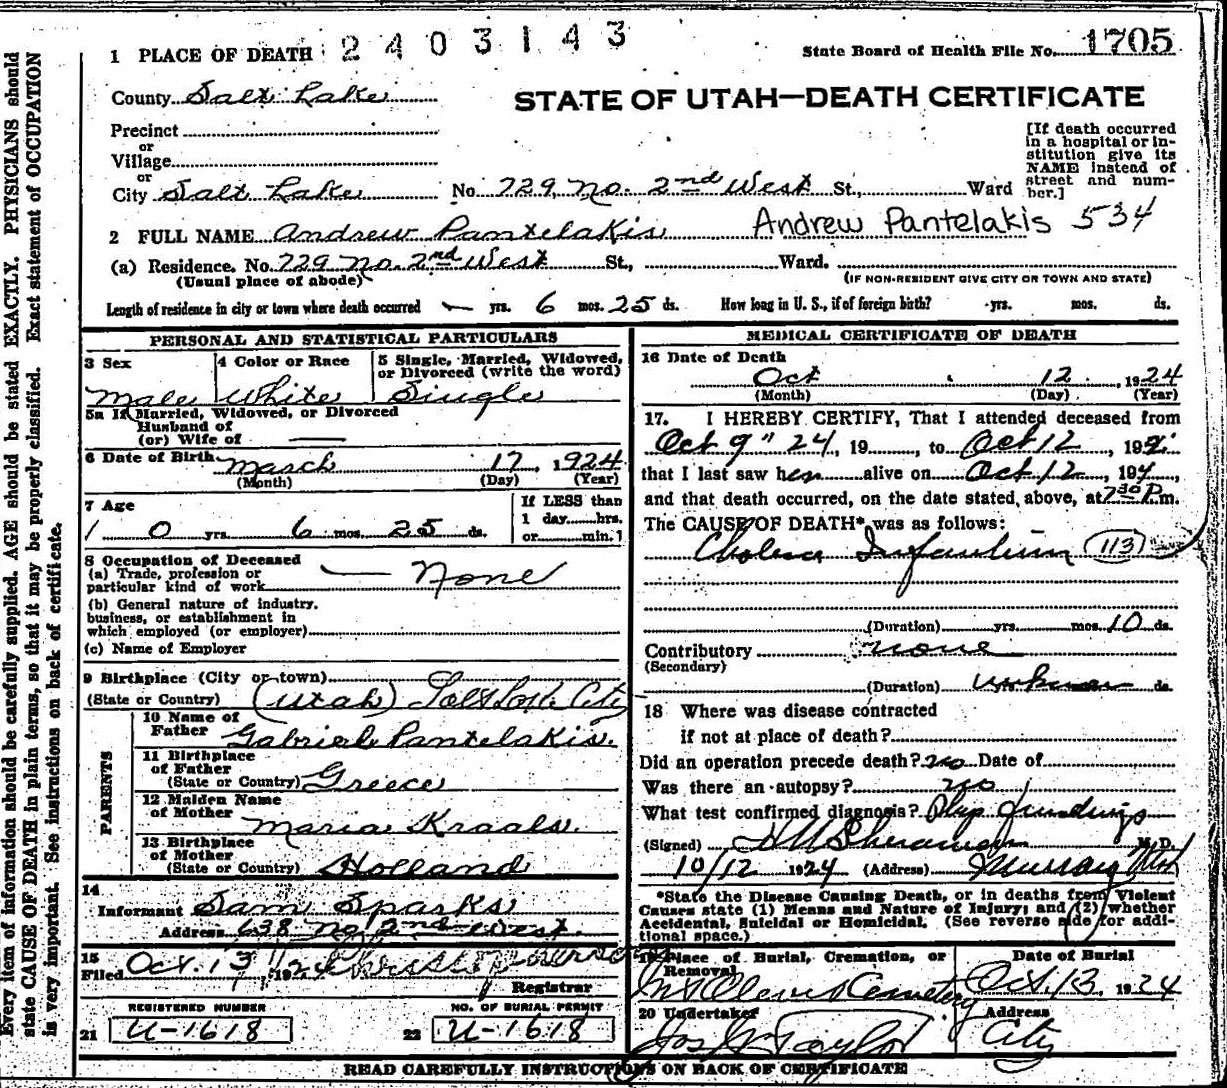 2403143
1 PLACE OF DEATH
State Board of Health File No. 1705
County Salt Lake
STATE OF UTAH—DEATH CERTIFICATE
Precinct
or
Village
or
City Salt Lake No 729 No. 2nd West St., Ward
[If death occurred
in a hospital or in-
stitution give its
NAME instead of
street and num-
ber.]
2 FULL NAME Andrew Pantelakis Andrew Pantelakis 534
(a) Residence. No. 729 No. 2nd West St., Ward.
(Usual place of abode)
(IF NON-RESIDENT GIVE CITY OR TOWN AND STATE)
Length of residence in city or town where death occurred — yrs. 6 mos. 25 ds. How long in U. S., if of foreign birth? yrs. mos. ds.
PERSONAL AND STATISTICAL PARTICULARS
3 Sex
Male
4 Color or Race
White
5 Single, Married, Widowed,
or Divorced (write the word)
Single
5a If Married, Widowed, or Divorced
Husband of
(or) Wife of —
6 Date of Birth March 17, 1924
(Month) (Day) (Year)
7 Age
0 yrs. 6 mos. 25 ds.
If LESS than
1 day......hrs.
or......min.?
8 Occupation of Deceased
(a) Trade, profession or
particular kind of work — None
(b) General nature of industry.
business, or establishment in
which employed (or employer)
(c) Name of Employer
9 Birthplace (City or town)
(State or Country) (Utah) Salt Lake City
PARENTS
10 Name of
Father Gabriel Pantelakis.
11 Birthplace
of Father
(State or Country) Greece
12 Maiden Name
of Mother Maria Kraals.
13 Birthplace
of Mother
(State or Country) Holland
14
Informant Sam Sparks
Address 638 No 2nd West.
15
Filed Oct. 13, 1924
Registrar
REGISTERED NUMBER
21 U-1618
NO. OF BURIAL PERMIT
22 U-1618
MEDICAL CERTIFICATE OF DEATH
16 Date of Death
Oct 12, 1924
(Month) (Day) (Year)
17. I HEREBY CERTIFY, That I attended deceased from
Oct 9" 24, 19......, to Oct 12, 192
that I last saw h alive on Oct 12, 19
and that death occurred, on the date stated above, at 7 30 P.m.
The CAUSE OF DEATH* was as follows:
Cholera Infantum (113)
(Duration) yrs. mos. 10 ds.
Contributory none
(Secondary)
(Duration) unknown ds.
18 Where was disease contracted
if not at place of death?
Did an operation precede death? no Date of
Was there an autopsy? no
What test confirmed diagnosis? Phys findings
(Signed) M. D.
10/12 1924 (Address) Murray Utah
*State the Disease Causing Death, or in deaths from Violent
Causes state (1) Means and Nature of Injury; and (2) whether
Accidental, Suicidal or Homicidal. (See reverse side for addi-
tional space.)
Place of Burial, Cremation, or
Removal
Mt Olivet Cemetery
Date of Burial
Oct. 13, 1924
20 Undertaker
Jos Wm Taylor
Address
City
READ CAREFULLY INSTRUCTIONS ON BACK OF CERTIFICATE
Every item of information should be carefully supplied. AGE should be stated EXACTLY. PHYSICIANS should
state CAUSE OF DEATH in plain terms, so that it may be properly classified. Exact statement of OCCUPATION
is very important. See instructions on back of certificate.